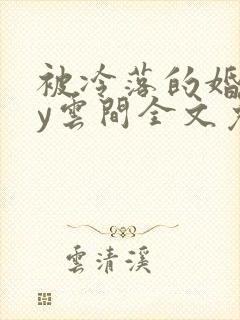 被冷落的婚
y雲間全文
雲清溪